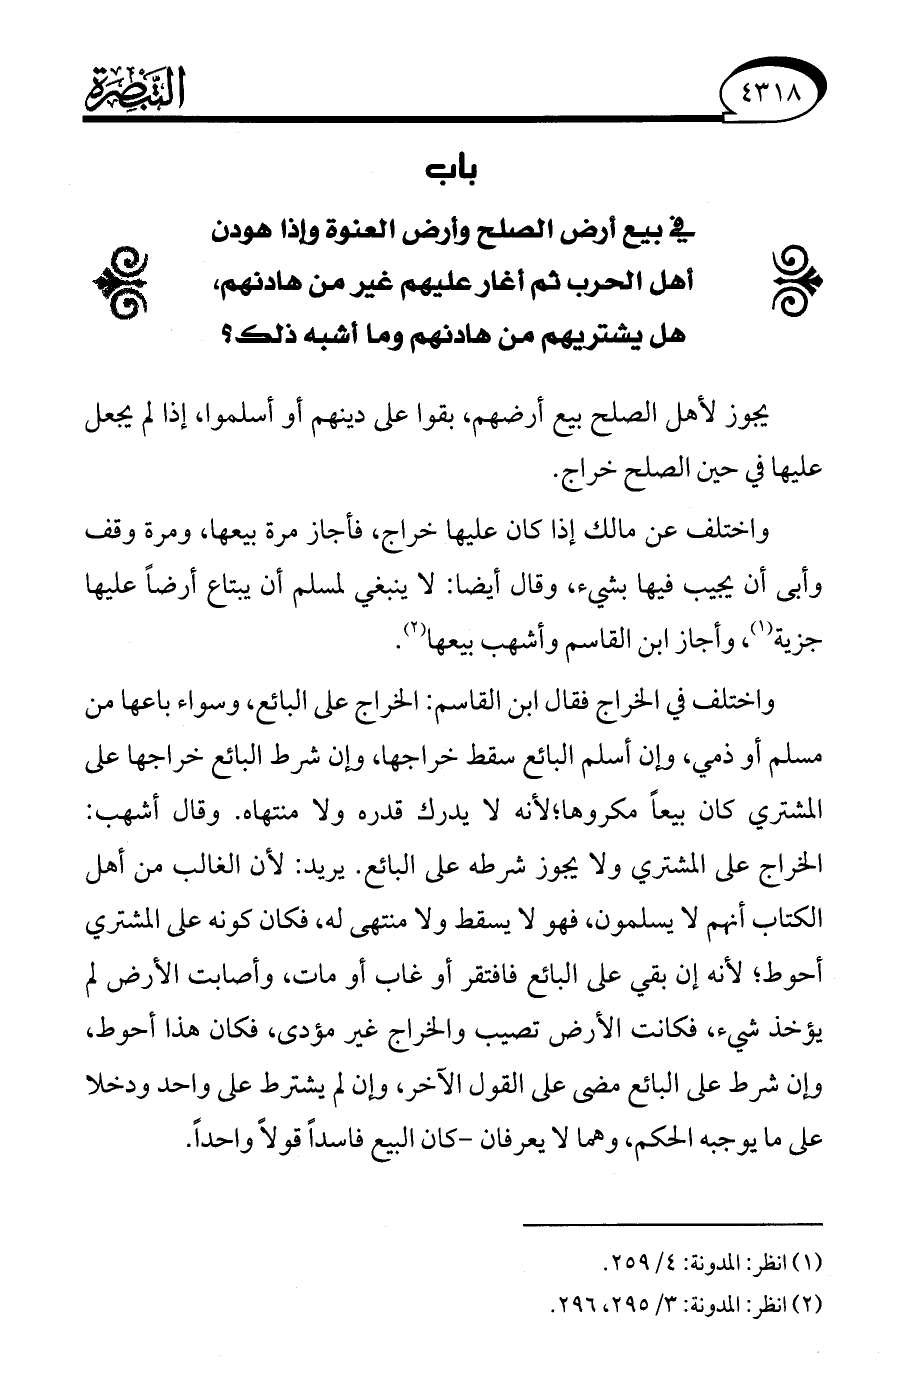 ٤٣١٨
التبصرة
باب
في بيع أرض الصلح وأرض العنوة وإذا هودن
أهل الحرب ثم أغار عليهم غير من هادنهم،
هل يشتريهم من هادنهم وما أشبه ذلك؟
يجوز لأهل الصلح بيع أرضهم، بقوا على دينهم أو أسلموا، إذا لم يجعل
عليها في حين الصلح خراج.
واختلف عن مالك إذا كان عليها خراج، فأجاز مرة بيعها، ومرة وقف
وأبى أن يجيب فيها بشيء، وقال أيضا: لا ينبغي لمسلم أن يبتاع أرضاً عليها
جزية(١)، وأجاز ابن القاسم وأشهب بيعها(٢).
واختلف في الخراج فقال ابن القاسم: الخراج على البائع، وسواء باعها من
مسلم أو ذمي، وإن أسلم البائع سقط خراجها، وإن شرط البائع خراجها على
المشتري كان بيعاً مكروها؛لأنه لا يدرك قدره ولا منتهاه. وقال أشهب:
الخراج على المشتري ولا يجوز شرطه على البائع. يريد: لأن الغالب من أهل
الكتاب أنهم لا يسلمون، فهو لا يسقط ولا منتهى له، فكان كونه على المشتري
أحوط؛ لأنه إن بقي على البائع فافتقر أو غاب أو مات، وأصابت الأرض لم
يؤخذ شيء، فكانت الأرض تصيب والخراج غير مؤدى، فكان هذا أحوط،
وإن شرط على البائع مضى على القول الآخر، وإن لم يشترط على واحد ودخلا
على ما يوجبه الحكم، وهما لا يعرفان -كان البيع فاسداً قولاً واحداً.
(١) انظر: المدونة: ٤/ ٢٥٩.
(٢) انظر: المدونة: ٣/ ٢٩٥، ٢٩٦.